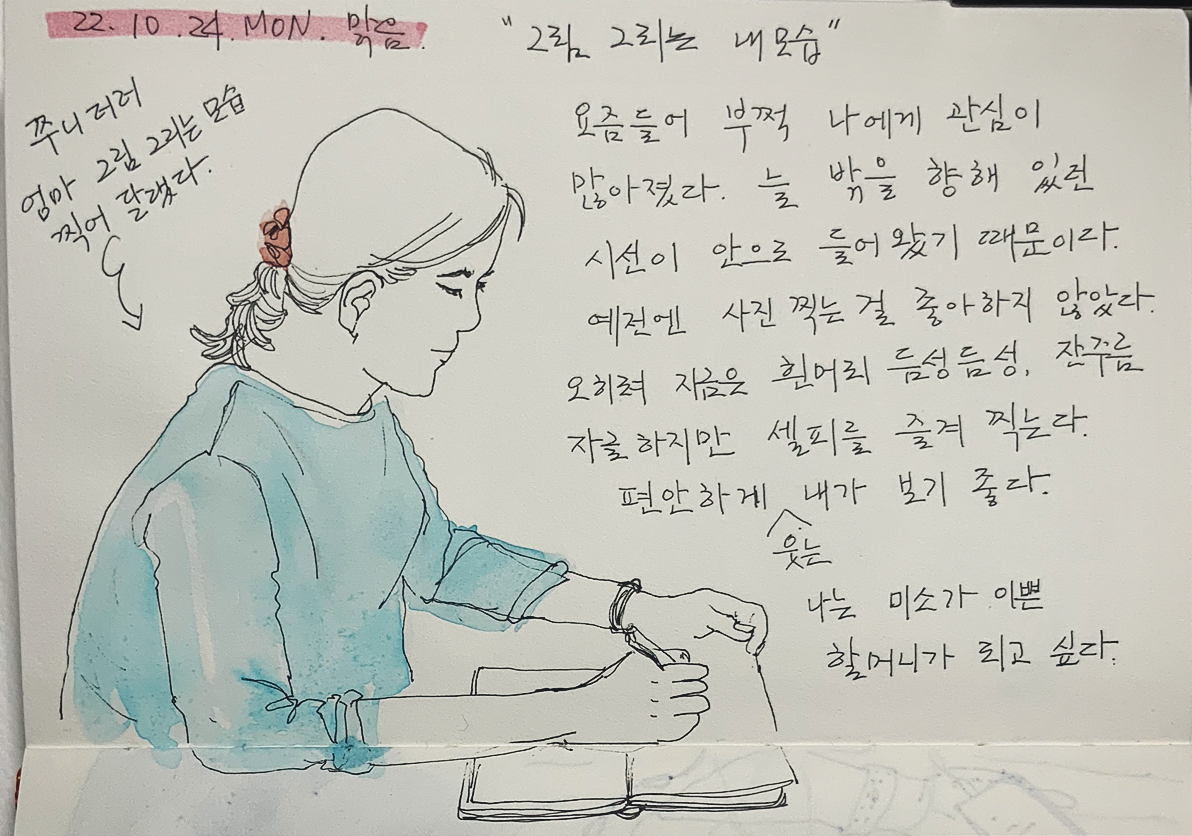 22.10.24.MON. 맑음.
"그림 그리는 내모습"
쭈니더러
엄마 그림 그리는 모습
찍어 달랬다.
요즘들어 부쩍 나에게 관심이
많아졌다. 늘 밖을 향해 있던
시선이 안으로 들어왔기 때문이다.
예전엔 사진 찍는걸 좋아하지 않았다.
오히려 지금은 흰머리 듬성듬성, 잔주름
자글하지만 셀피를 즐겨 찍는다.
편안하게 내가 보기 좋다.
웃는
나는 미소가 이쁜
할머니가 되고 싶다.